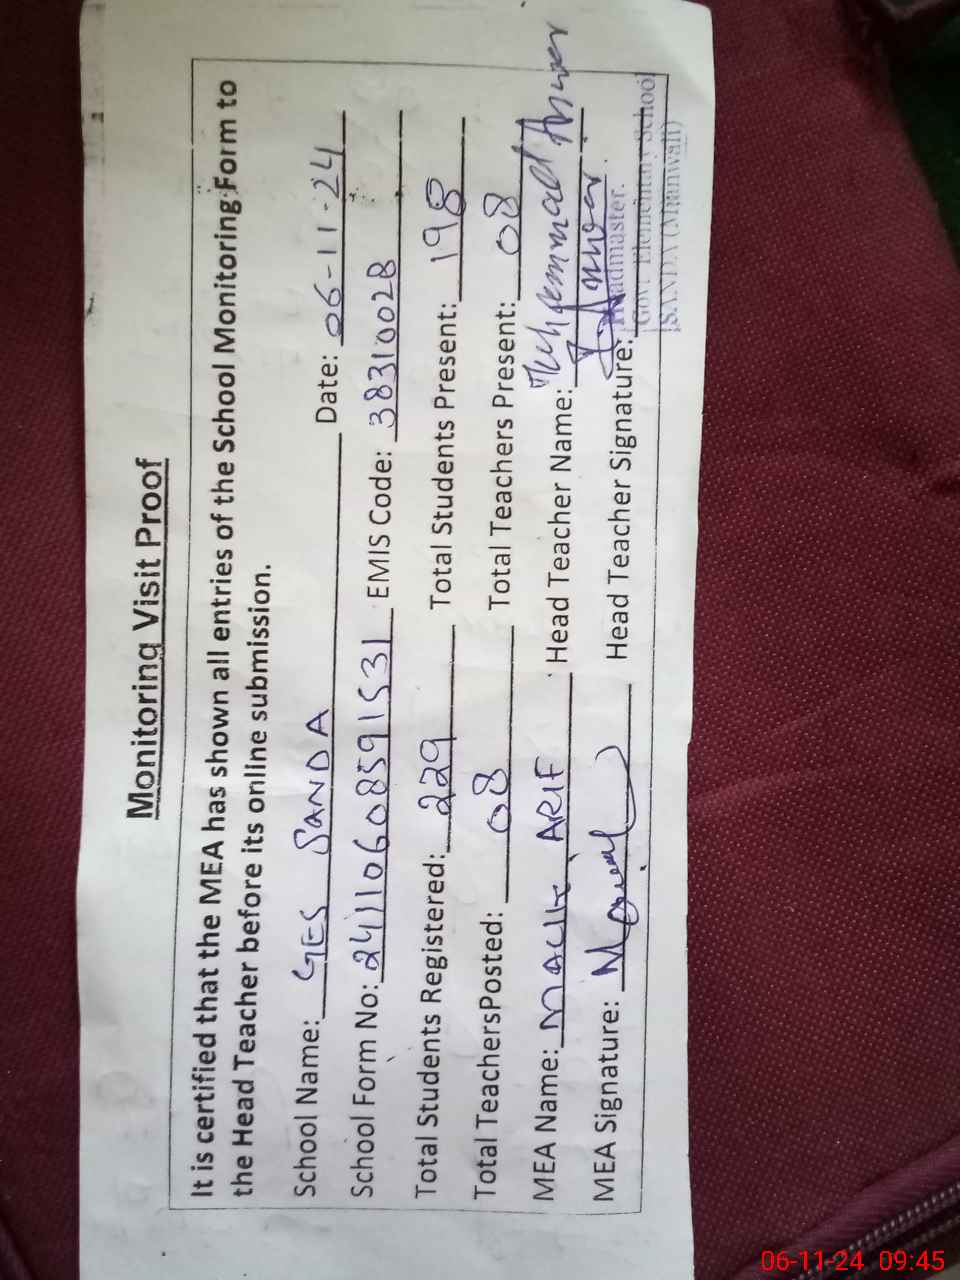 Monitoring Visit Proof
It is certified that the MEA has shown all entries of the School Monitoring Form to
the Head Teacher before its online submission.
School Name: GES SANDA Date: 06-11-24
School Form No: 24110608591531 EMIS Code: 38310028
Total Students Registered: 229 Total Students Present: 198
Total TeachersPosted: 08 Total Teachers Present: 08
MEA Name: MALIK ARIF Head Teacher Name: Muhammad Anwar
MEA Signature: Head Teacher Signature: Anwar
Headmaster.
Govt Elementary School
SANDA (Mianwali)
06-11-24 09:45